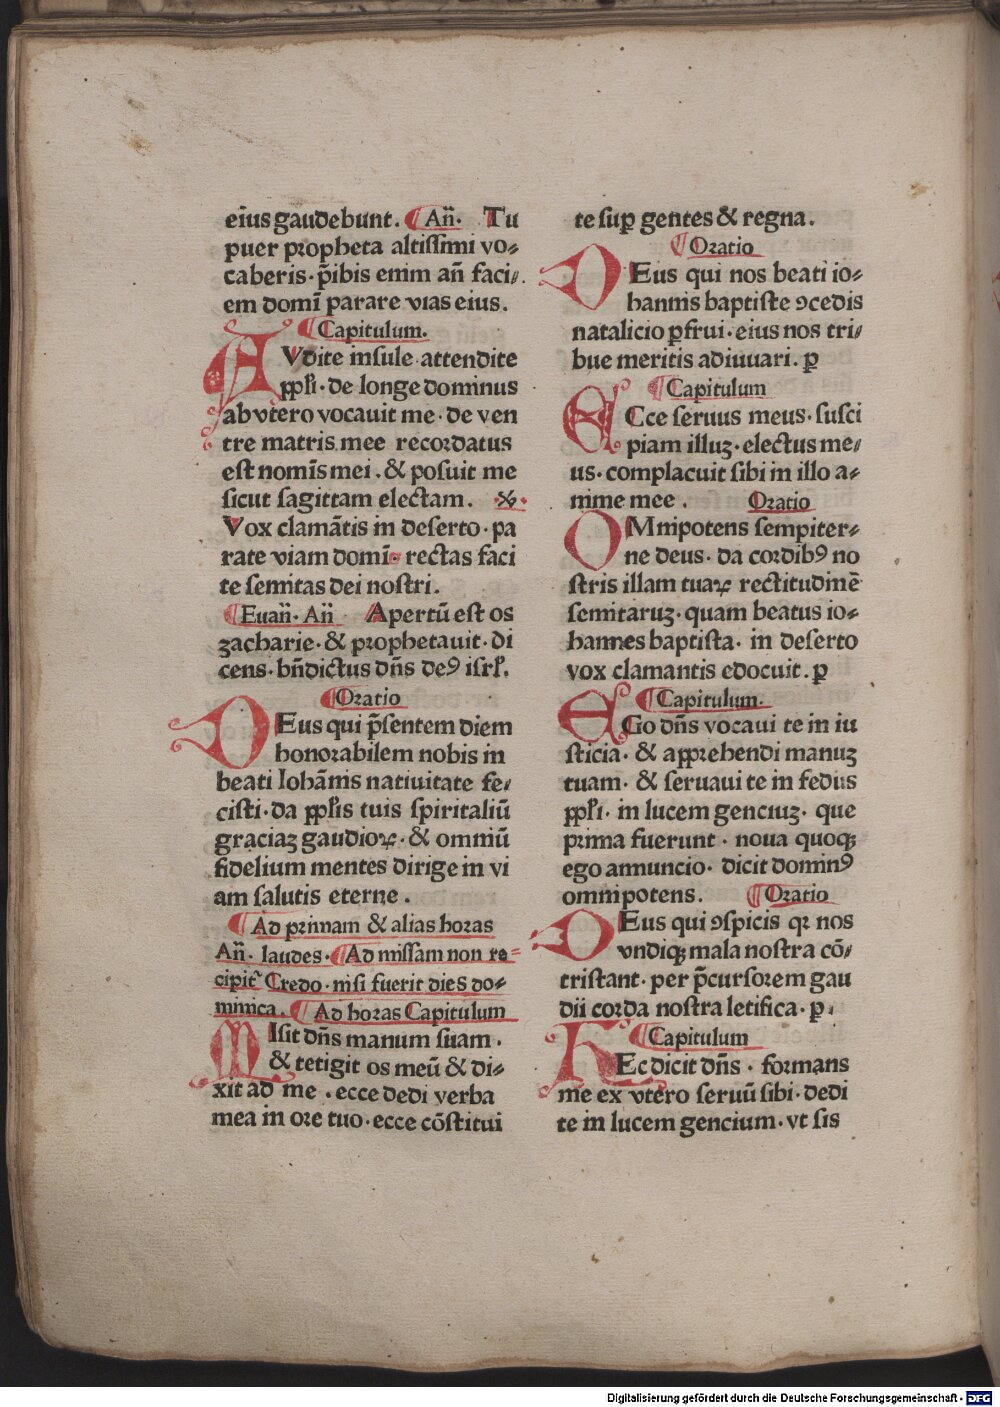 eiꝰ gaudebunt. ¶ Añ· Tu
puer propheta altissimi vo⸗
caberis· p̄ibis enim an̄ faci⸗
em domī parare vias eius.
¶ Capitulum.
AVdite insule attendite
ppl̓i· de longe dominus
ab vtero vocauit me· de ven
tre matris mee recordatus
est nomīs mei. & posuit me
sicut sagittam electam.
Vox clamātis in deserto· pa
rate viam domī· rectas faci
te semitas dei nostri.
¶ Euañ· Añ Apertū est os
zacharie· & prophetauit· di
cens· bn̄dictus dn̄s deꝰ isrl̓.
¶ Oratio
DEus qui p̄sentem diem
honorabilem nobis in
beati Iohānis natiuitate fe⸗
cisti· da ppl̓is tuis spiritaliū
graciaꝫ gaudioꝝ· & omniū
fidelium mentes dirige in vi
am salutis eterne.
¶ Ad primam & alias horas
Añ· laudes· ¶ Ad missam non re⸗
cipit᷑ Credo· nisi fuerit dies do⸗
minica. ¶ Ad horas Capitulum
MIsit dn̄s manum suam.
& tetigit os meū & di⸗
xit ad me. ecce dedi verba
mea in ore tuo· ecce cōstitui
te suꝑ gentes & regna.
¶ Oratio
DEus qui nos beati io⸗
hannis baptiste ꝯcedis
natalicio ꝑfrui· eius nos tri⸗
bue meritis adiuuari. ꝑ
¶ Capitulum
ECce seruus meus· susci
piam illuꝫ· electus me⸗
us· complacuit sibi in illo a⸗
nime mee. Oratio
OMnipotens sempiter⸗
ne deus· da cordibꝰ no
stris illam tuaꝝ rectitudinē
semitaruꝫ· quam beatus io⸗
hannes baptista· in deserto
vox clamantis edocuit. ꝑ
¶ Capitulum.
EGo dn̄s vocaui te in iu
sticia· & apprehendi manuꝫ
tuam· & seruaui te in fedus
ppl̓i· in lucem genciuꝫ· que
prima fuerunt· noua quoqꝫ
ego annuncio· dicit dominꝰ
omnipotens. ¶ Oratio
DEus qui ꝯspicis qꝛ nos
vndiqꝫ mala nostra cō⸗
tristant· per p̄cursorem gau
dii corda nostra letifica. ꝑ.
¶ Capitulum
HEc dicit dn̄s· formans
me ex vtero seruū sibi· dedi
te in lucem gencium· vt sis
Digitalisierung gefördert durch die Deutsche Forschungsgemeinschaft - DFG